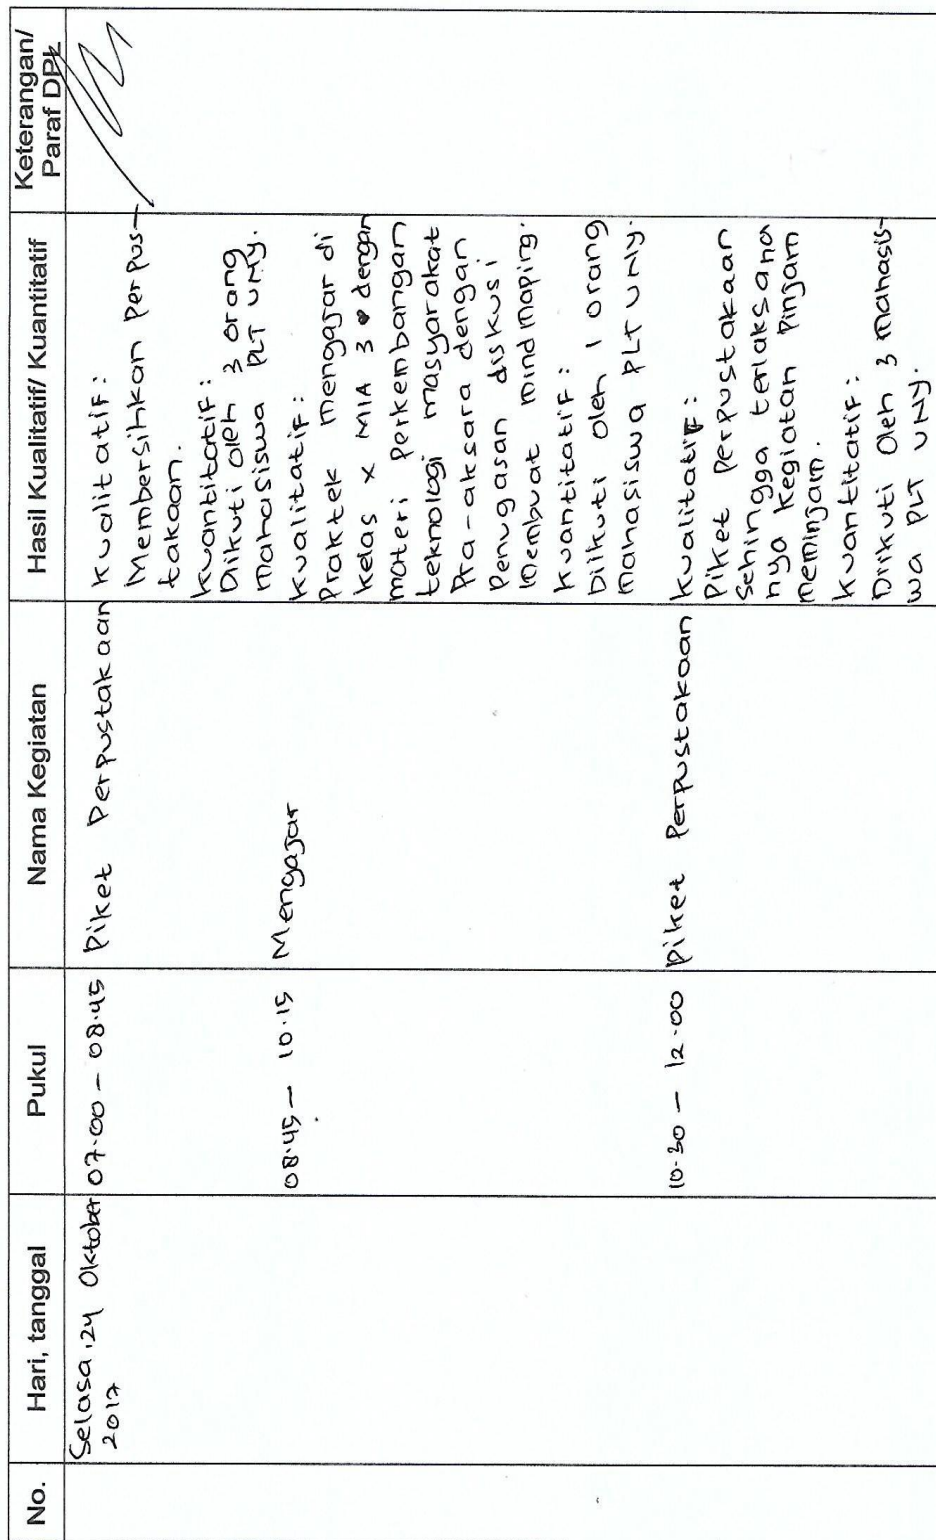 No.
Hari, tanggal
Pukul
Nama Kegiatan
Hasil Kualitatif/ Kuantitatif
Keterangan/
Paraf DPL
Selasa, 24 Oktober
2017
07.00 – 08.45
Piket Perpustakaan
Kualitatif:
Membersihkan perpus-
takaan.
Kuantitatif:
Diikuti oleh 3 orang
mahasiswa PLT UNY.
08.45 – 10.15
Mengajar
Kualitatif:
Praktek mengajar di
kelas X MIA 3 dengan
materi perkembangan
teknologi masyarakat
Pra-aksara dengan
Penugasan diskusi
membuat mind maping.
Kuantitatif:
Diikuti oleh 1 orang
mahasiswa PLT UNY.
10.30 – 12.00
Piket Perpustakaan
Kualitatif:
Piket perpustakaan
sehingga terlaksana
nya kegiatan pinjam
meminjam.
Kuantitatif:
Diikuti Oleh 3 mahasis-
wa PLT UNY.